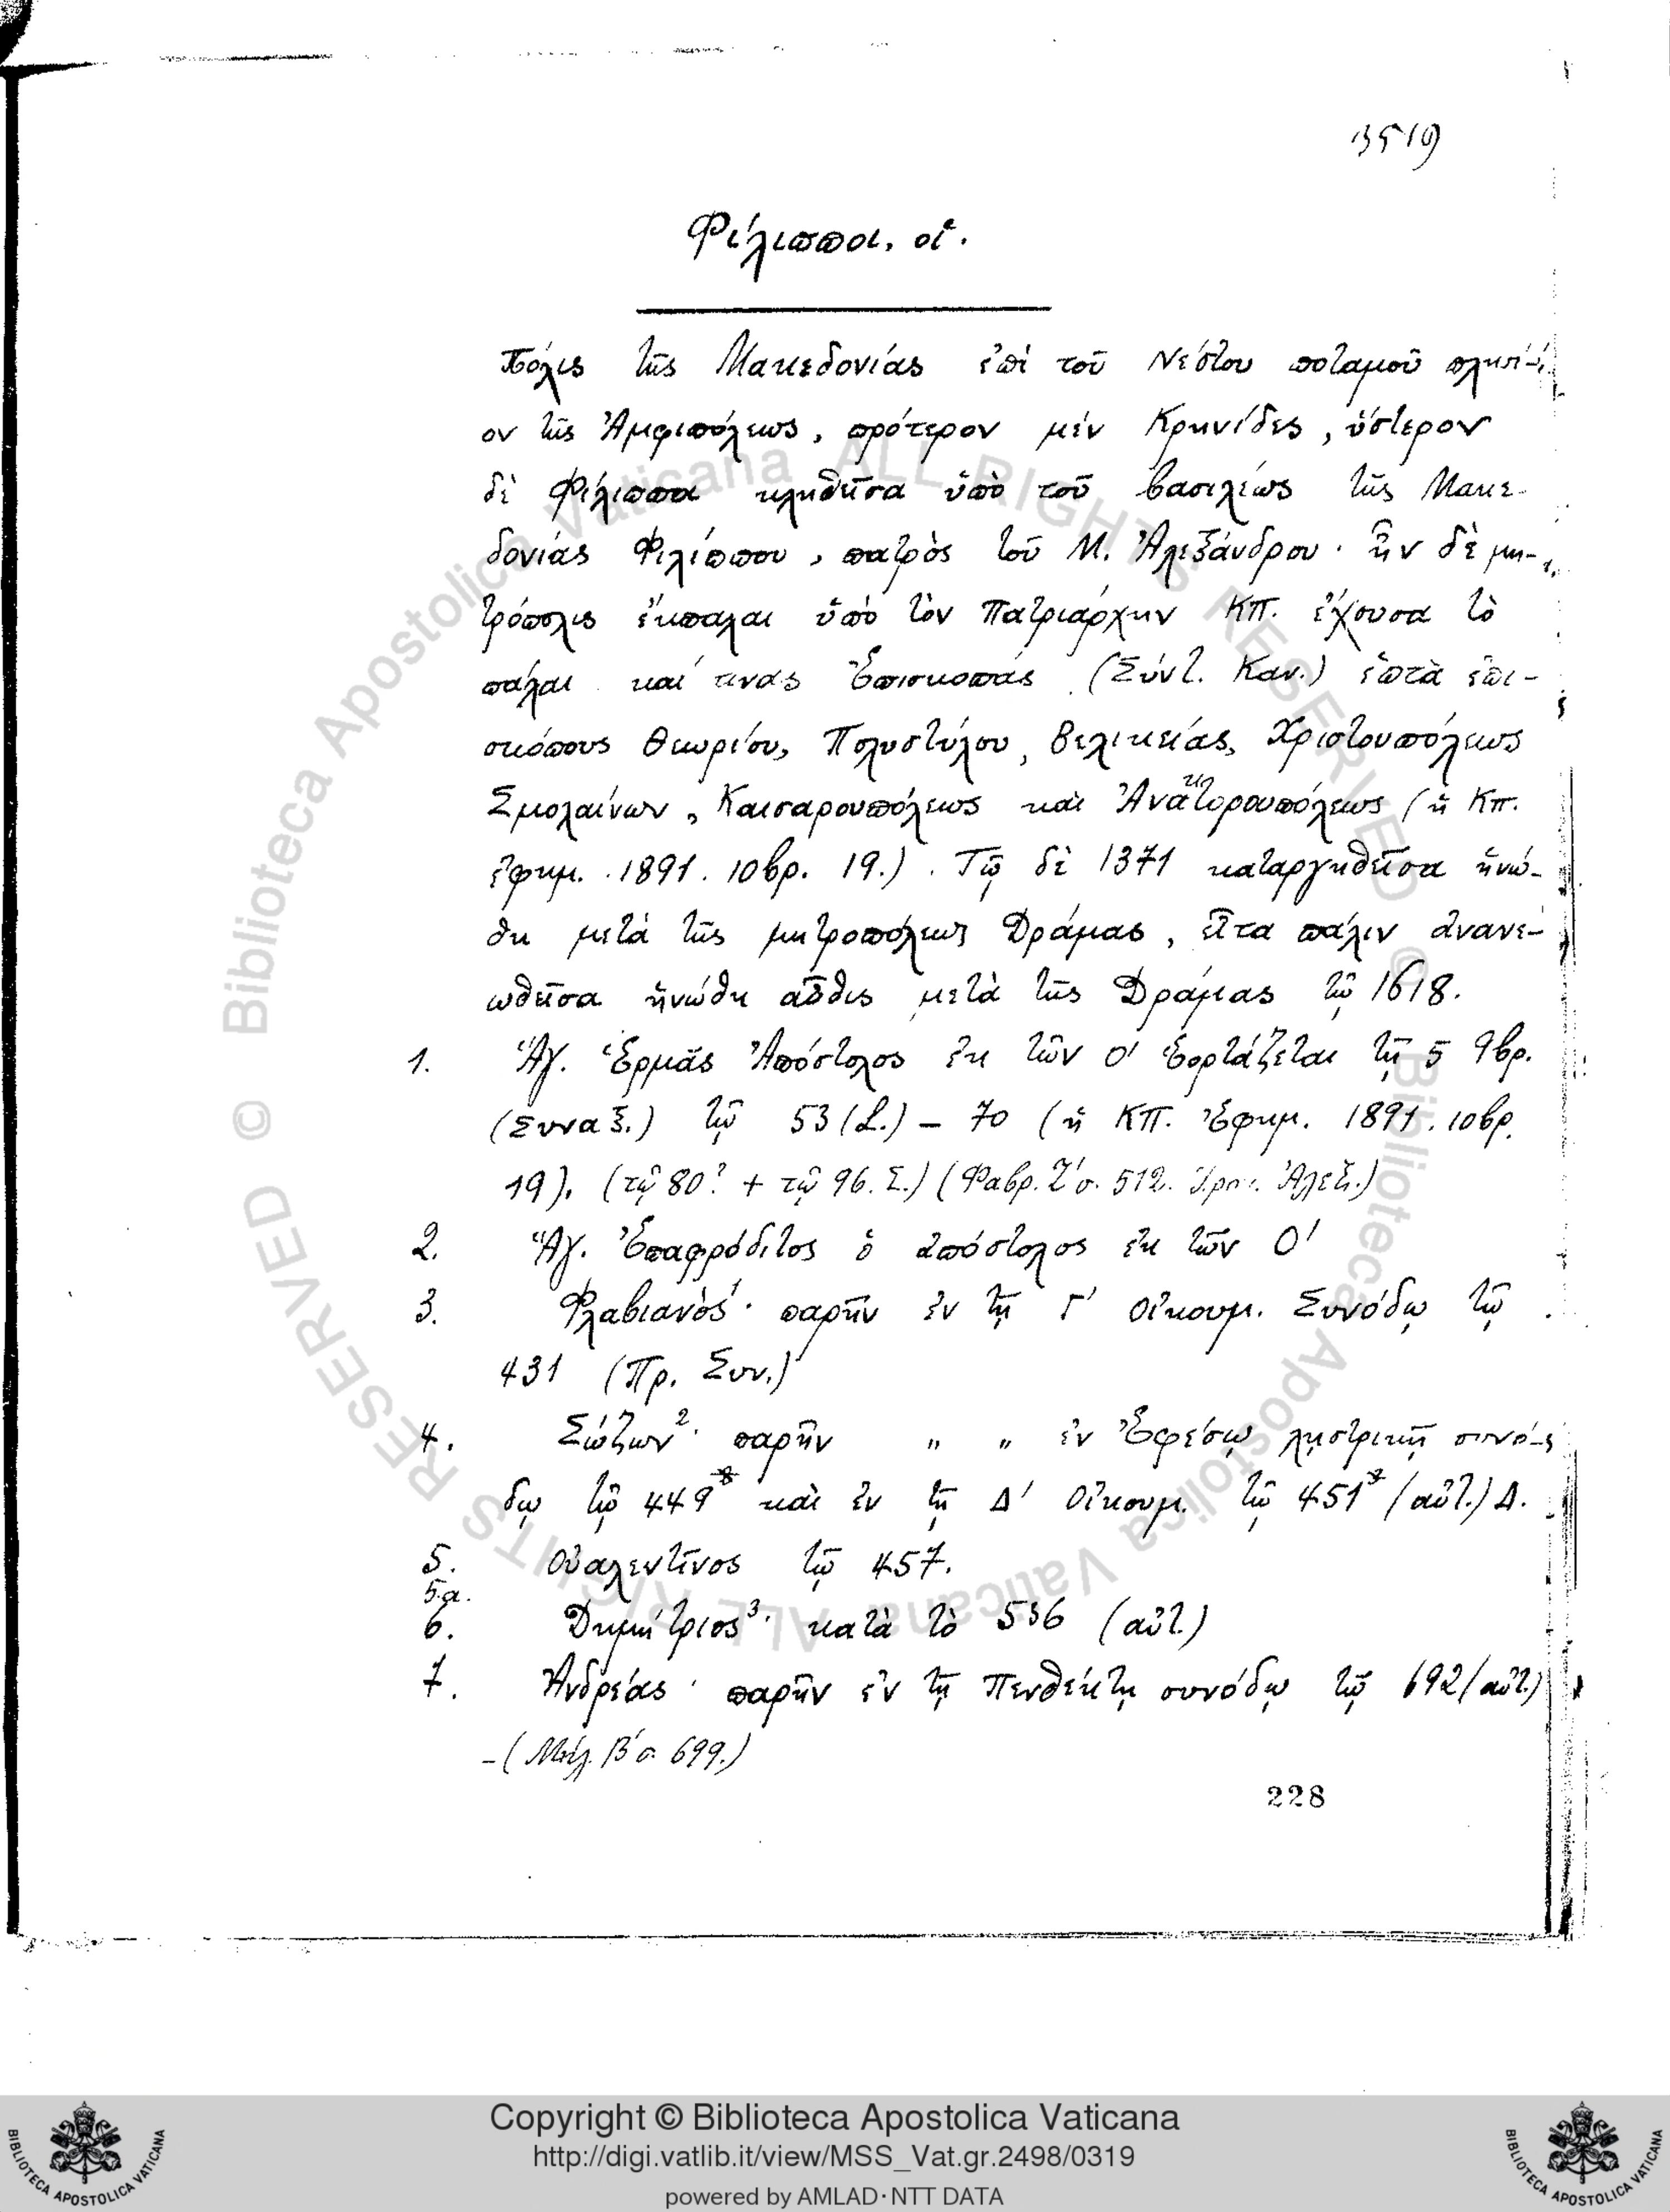 Φίλιπποι, οἱ.
Πόλις τῆς Μακεδονίας ἐπὶ τοῦ Νέστου ποταμοῦ πλησί-
ον τῆς Ἀμφιπόλεως, πρότερον μέν Κρηνίδες, ὕστερον
δὲ Φίλιπποι κληθεῖσα ὑπὸ τοῦ βασιλέως τῆς Μακε-
δονίας Φιλίππου, πατρὸς τοῦ Μ. Ἀλεξάνδρου· ἦν δὲ μη-
τρόπολις ἔκπαλαι ὑπὸ τὸν Πατριάρχην ΚΠ. ἔχουσα τὸ
πάλαι καί τινας Ἐπισκοπάς (Σύντ. Καν.) ἑπτὰ ἐπι-
σκόπους Θεωρίου, Πολυστύλου, Βελικείας, Χριστουπόλεως
Σμολαίνων, Καισαρουπόλεως καὶ Ἀνακτορουπόλεως (ἡ Κπ.
ἐφημ. 1891. 10βρ. 19.). Τῷ δὲ 1371 καταργηθεῖσα ἡνώ-
θη μετά τῆς μητροπόλεως Δράμας, εἶτα πάλιν ἀνανε-
ωθεῖσα ἡνώθη αὖθις μετὰ τῆς Δράμας τῷ 1618.
1. Ἅγ. Ἑρμᾶς Ἀπόστολος ἐκ τῶν Ο' ἑορτάζεται τῇ 5 9βρ.
(Συναξ.) τῷ 53 (L.) – 70 (ἡ ΚΠ. Ἐφημ. 1891. 10βρ.
19). (τῷ 80? + τῷ 96. Σ.) (Φαβρ. Ζ' σ. 512. Ἀλεξ.)
2. Ἅγ. Ἐπαφρόδιτος ὁ ἀπόστολος ἐκ τῶν Ο'
3. Φλαβιανὸς¹· παρῆν ἐν τῇ Γ' Οἰκουμ. Συνόδῳ τῷ
431 (Πρ. Συν.)
4. Σώζων²· παρῆν " " ἐν Ἐφέσῳ λῃστρικῇ συνό-
δῳ τῷ 449* καὶ ἐν τῇ Δ' Οἰκουμ. τῷ 451* (αὐτ.) Δ.
5. Οὐαλεντῖνος τῷ 457.
5α.
6. Δημήτριος³· κατὰ τὸ 536 (αὐτ.)
7. Ἀνδρέας· παρῆν ἐν τῇ Πενθέκτῃ συνόδῳ τῷ 692 (αὐτ.)
– (Μελ. Β' σ. 699.)
228
© Biblioteca Apostolica Vaticana ALL RIGHTS RESERVED © Biblioteca Apostolica Vaticana ALL RIGHTS RESERVED
Copyright © Biblioteca Apostolica Vaticana
http://digi.vatlib.it/view/MSS_Vat.gr.2498/0319
powered by AMLAD·NTT DATA
BIBLIOTECA APOSTOLICA VATICANA
BIBLIOTECA APOSTOLICA VATICANA